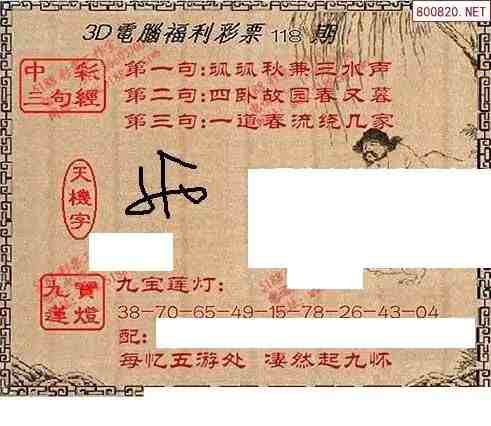 800820.NET
3D電腦福利彩票 118 期
中彩三句經
第一句:沨沨秋兼三水声
第二句:四卧故园春又暮
第三句:一道春流绕几家
天機字
九寶蓮燈
九宝莲灯:
38-70-65-49-15-78-26-43-04
配:
每忆五游处 凄然起九怀